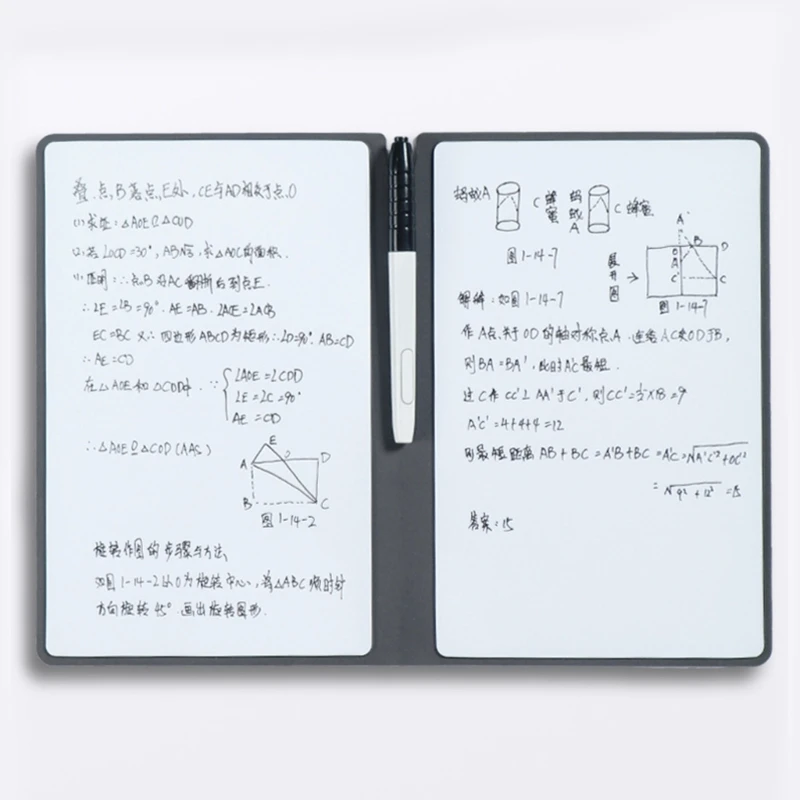 叠,点B落点E处,CE与AD相交于点O
(1)求证:△AOE≌△COD
(2)若∠OCD=30°,AB=√3,求△AOC的面积.
(1)证明:∵点B沿AC翻折后到点E.
∴∠E=∠B=90°.AE=AB.∠ACE=∠ACB
EC=BC 又∵四边形ABCD为矩形∴∠D=90°.AB=CD
∴AE=CD
在△AOE和△COD中.∵
∠AOE=∠COD
∠E=∠C=90°
AE=CD
∴△AOE≌△COD(AAS)
E
A
O
D
B
C
图1-14-2
旋转作图的步骤与方法,
如图1-14-2以O为旋转中心,将△ABC顺时针
方向旋转45°.画出旋转图形.
蚂蚁A
C蜂蜜
蚂蚁A
C蜂蜜
图1-14-7
展开图→
A'
O
B
D
A
C'
C
图1-14-7
解释:如图1-14-7
作A点关于OD的轴对称点A.连结AC交OD于B,
则BA=BA',此时AC最短.
过C作CC'⊥AA'于C',则CC'=½×18=9
A'C'=4+4+4=12
则最短距离AB+BC=A'B+BC=A'C=√A'C'²+CC'²
=√9²+12²=15
答案:15